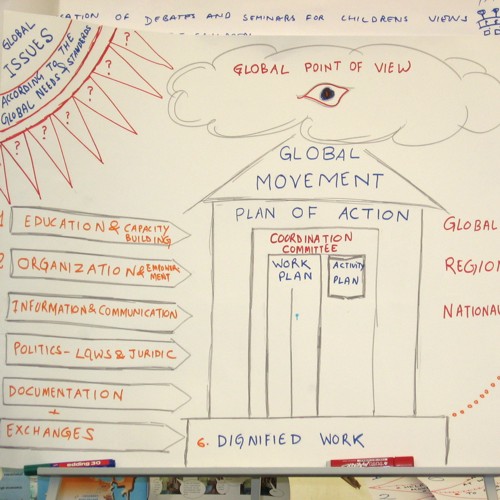 ATION OF DEBATES AND SEMINARS FOR CHILDRENS VIEWS
GLOBAL
ISSUES
ACCORDING TO THE
GLOBAL NEEDS & STANDARDS
? ? ? ? ? ?
GLOBAL POINT OF VIEW
GLOBAL
MOVEMENT
PLAN OF ACTION
COORDINATION
COMMITTEE
WORK
PLAN
ACTIVITY
PLAN
1 EDUCATION & CAPACITY
BUILDING
ORGANIZATION & EMPOWER
MENT
INFORMATION & COMMUNICATION
POLITICS - LAWS & JURIDIC
DOCUMENTATION
+
EXCHANGES
6. DIGNIFIED WORK
GLOBAL
REGION
NATIONA
edding 30